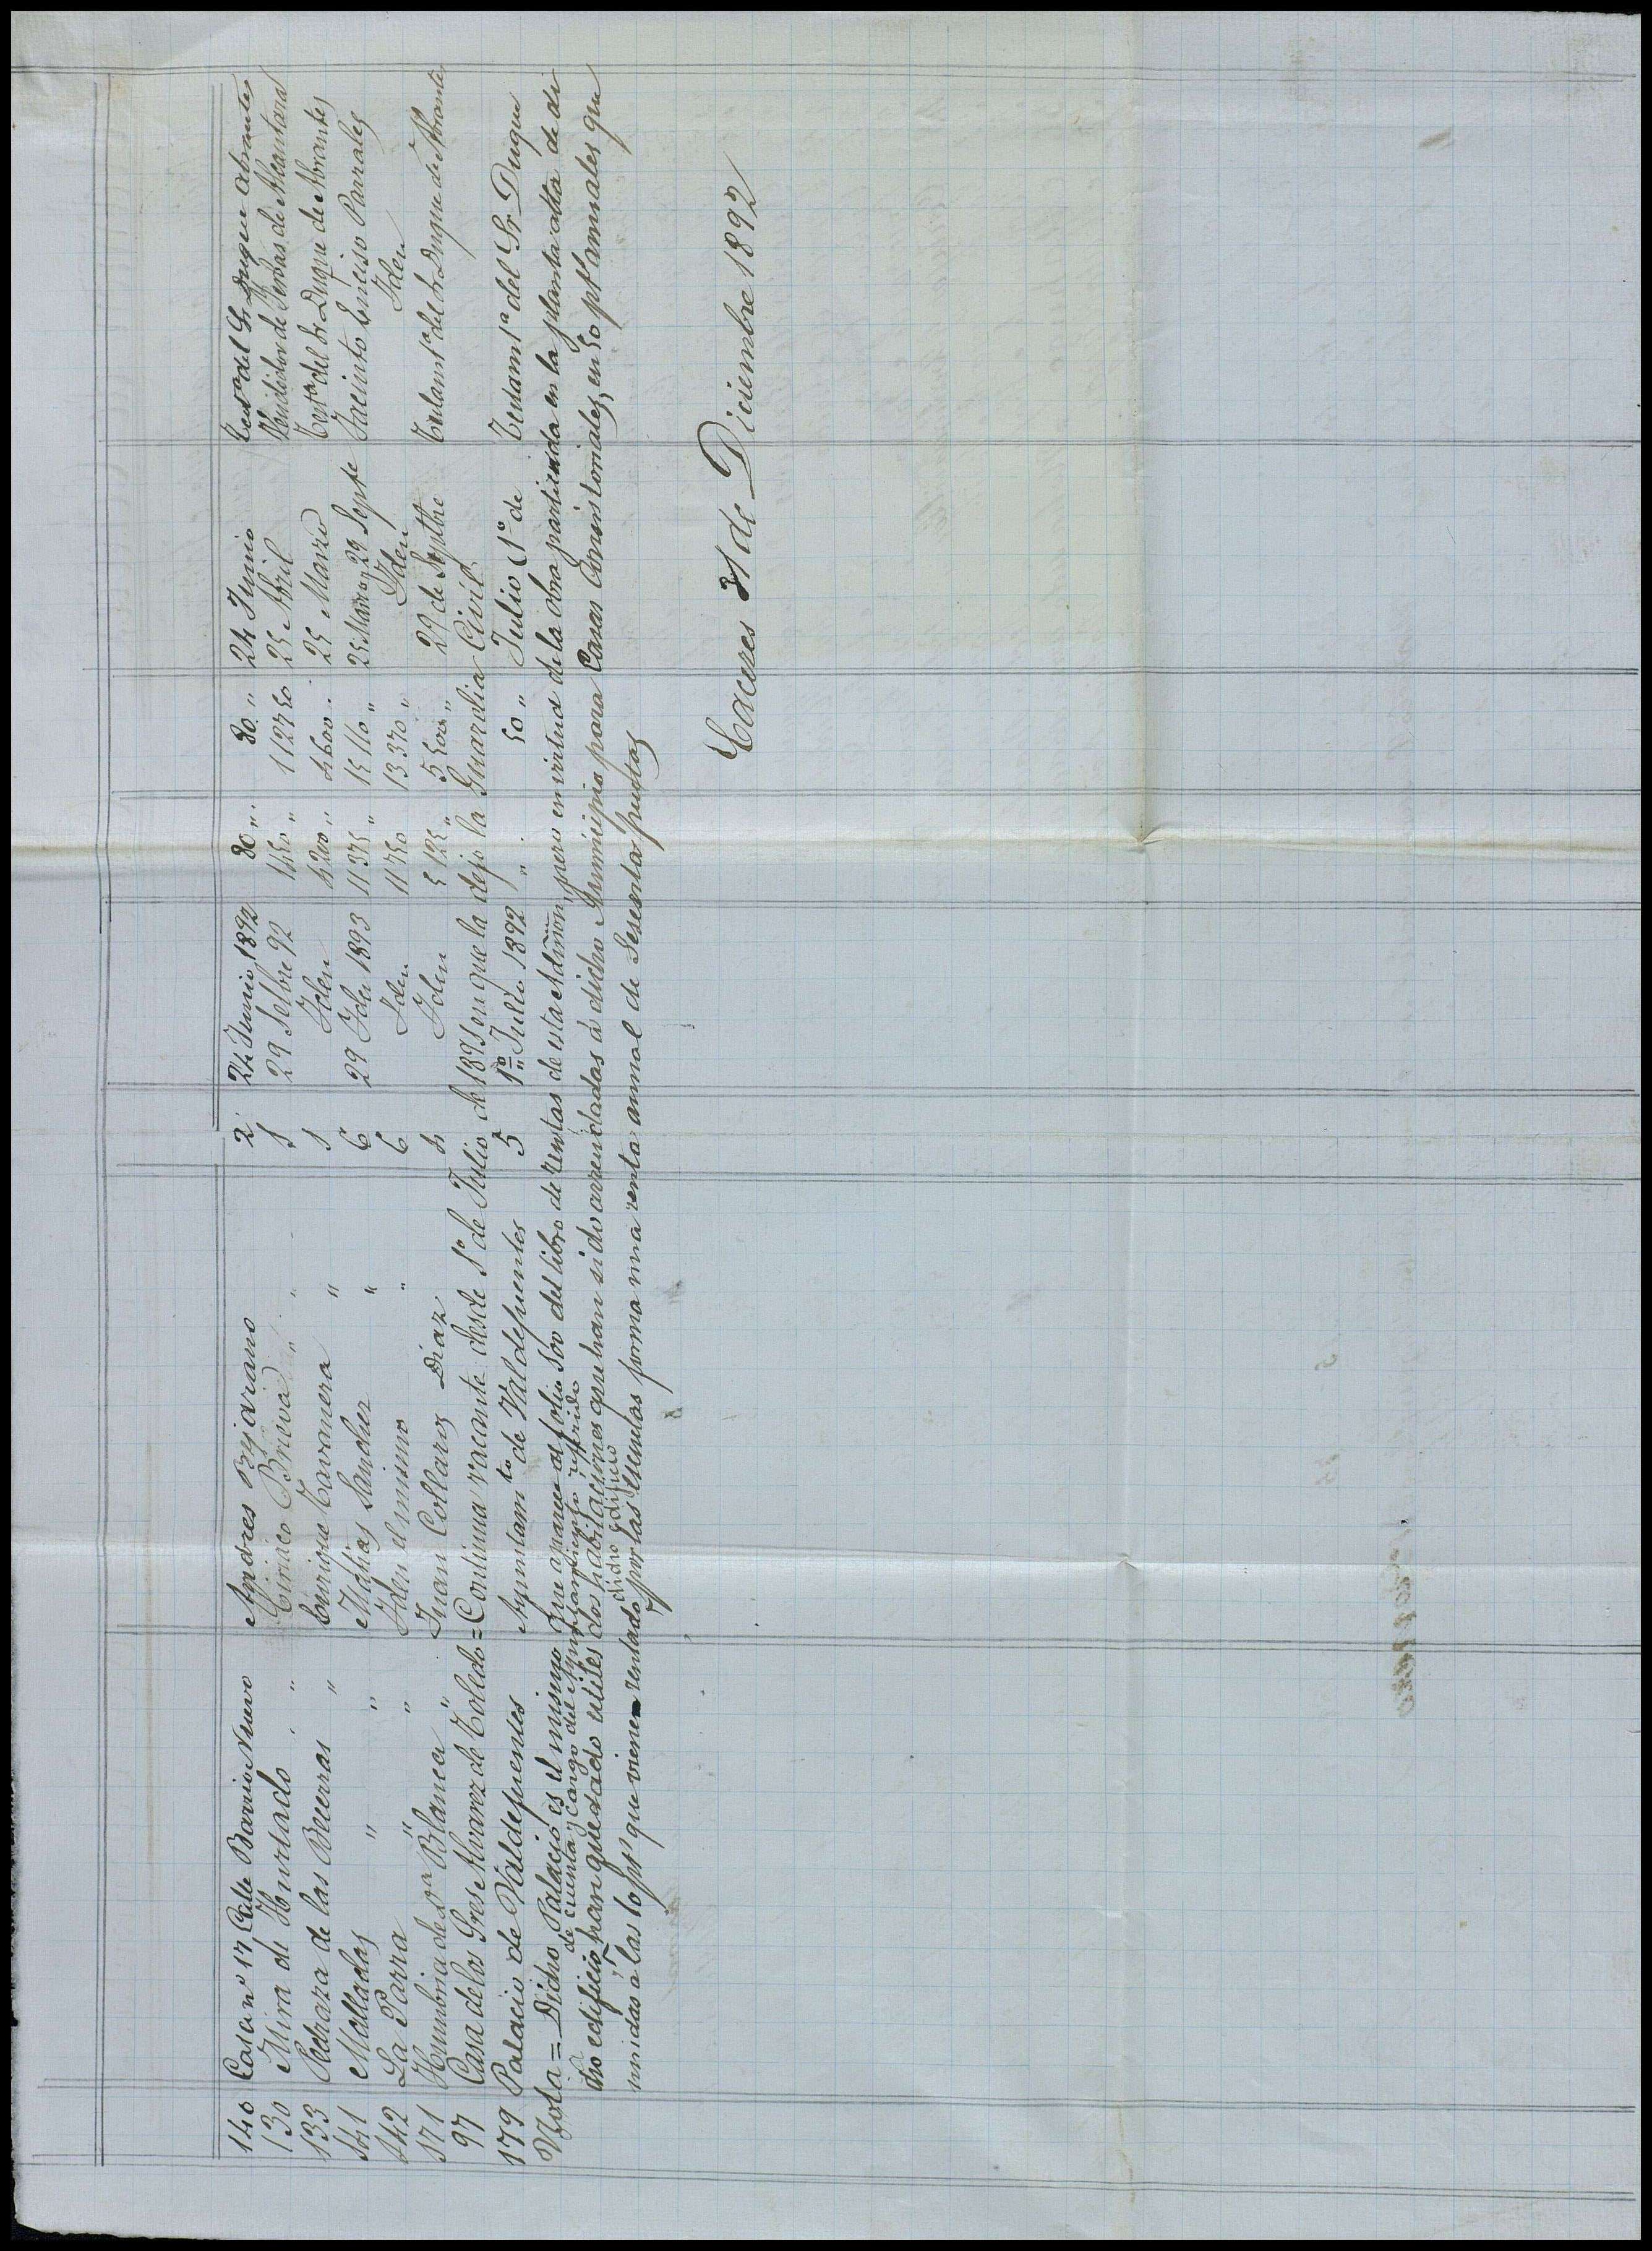 140 Casa nº 17 Calle Barrio Nuevo Andres Bejarano 2 24 Junio 1892 80 " 80 " 24 Junio Testª del Sr Duque Abrantes
130 Mira de Hurtado " " Ciriaco Brieva " " 1 29 Setbre 92 1150 " 1127 50 25 Abril de Alcantara
133 Pedraza de las Becerras " Enrique Tavanera " 1 Iden 4200 " 4600 " 25 Marzo Testª del Sr Duque de Abrantes
141 Malladas " " Matias Sanchez " 6 29 Iden 1893 11375 " 15110 " 25 Marzo y 29 Septe Jacinto Enciso Parrales
142 La Parra " " Iden el mismo " 6 Iden 11750 13370 " Iden Iden
171 Humbria de Dª Blanca " Juan Collazos Diaz 4 Iden 5125 " 5500 " 29 de Septbre Testamtª del Sr Duque de Abrantes
97 Casa de los Sres Alvarez de Toledo = Continua vacante desde 1º de Julio de 1891 en que la dejo la Guardia Civil
179 Palacio de Valdefuentes Ayuntamto de Valdefuentes 5 1º Julio 1892 " " 50 " Julio (1º de Testamtª del Sr Duque
Nota = Dicho Palacio es el mismo que aparece al folio 180 del libro de rentas de esta Admon, pero en virtud de la obra particada en la planta alta de di
de cuenta y cargo del Ayuntamiento referido
cho edificio han quedado utiles dos habitaciones que han sido arrendadas á dicho Municipio para Casas Consistoriales, en 50 pts anuales que
dicho edificio
unidas á las 10 pts que viene rentado por las escuelas forma una renta anual de Sesenta pesetas
Caceres 31 de Diciembre 1892